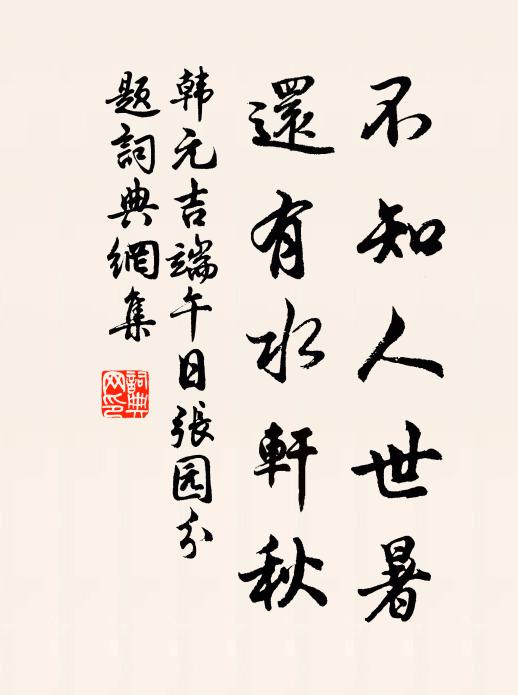 不知人世暑
還有水軒秋
韩元吉端午日張园分
题詞典網集
詞典網印